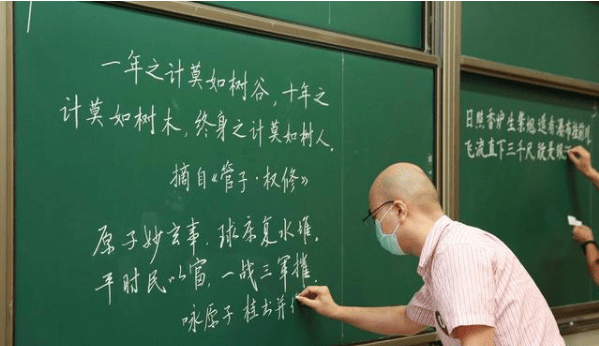 一年之计莫如树谷,十年之
计莫如树木,终身之计莫如树人。
摘自《管子·权修》
原子妙玄事,球床复水堆。
平时民以富,一战三军摧。
咏原子
日照香炉生紫烟遥看瀑布挂前川
飞流直下三千尺,疑是银